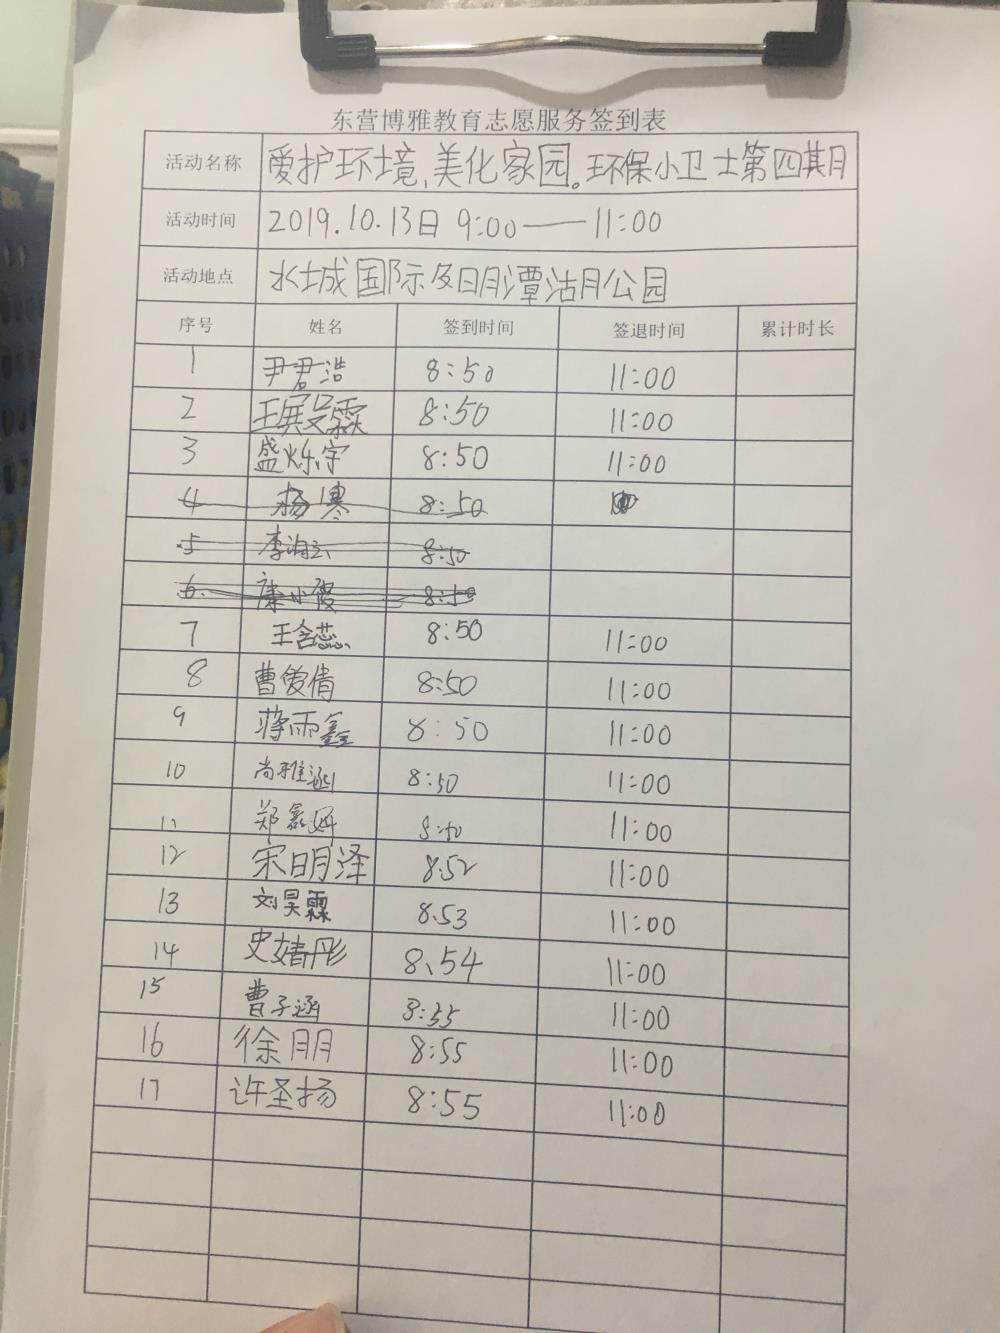 东营博雅教育志愿服务签到表
活动名称 爱护环境,美化家园。环保小卫士第四期月
活动时间 2019.10.13日 9:00——11:00
活动地点 水城国际及日月潭沽月公园
序号 姓名 签到时间 签退时间 累计时长
1 尹君浩 8:50 11:00
2 8:50 11:00
3 盛烁宇 8:50 11:00
4 杨骞 8:50
5 李湘云 8:50
6 康小俊 8:50
7 王含蕊 8:50 11:00
8 曹爱倩 8:50 11:00
9 蒋雨鑫 8:50 11:00
10 尚雅涵 8:50 11:00
11 8:50 11:00
12 宋明泽 8:52 11:00
13 刘昊霖 8.53 11:00
14 史婧彤 8、54 11:00
15 曹子涵 8:55 11:00
16 徐朋 8:55 11:00
17 许圣扬 8:55 11:00